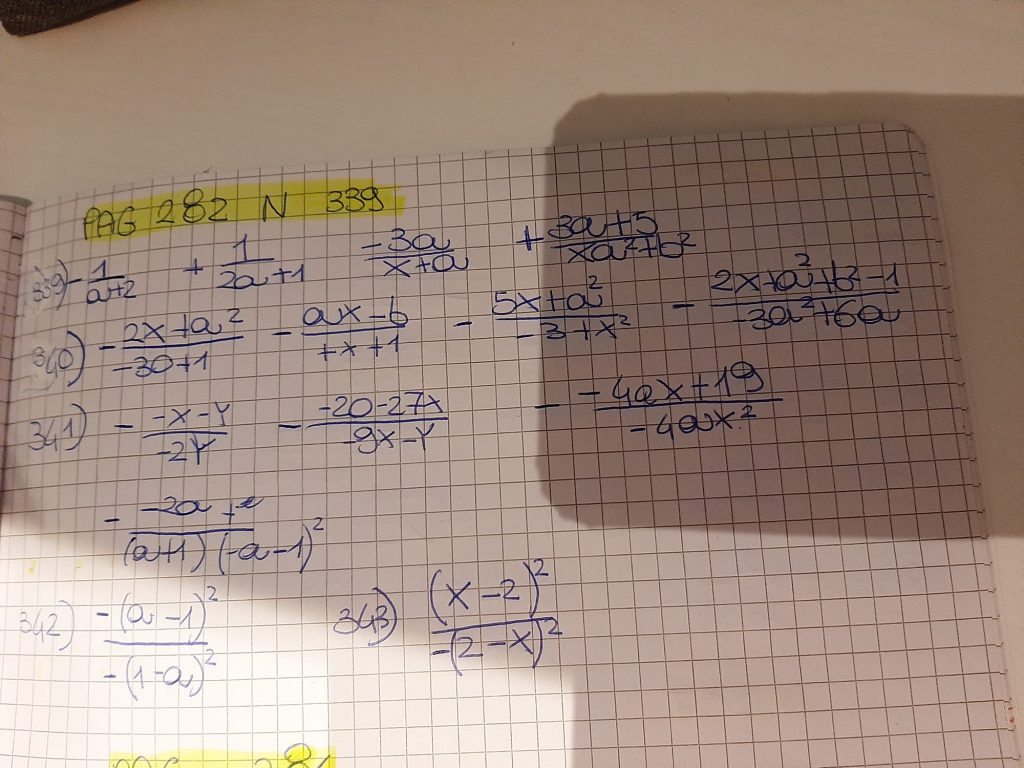 PAG 282 N 339
339) -1/(a+2) +1/(2a+1) -3a/(x+a) +(3a+5)/(xa²+b²)
340) -(2x+a²)/(-30+1) -(ax-b)/(+x+1) -(5x+a²)/(-3+x²) -(2x+a²+b²-1)/(-3a²+6a)
341) -(-x-Y)/(-2Y) -(-20-27x)/(-9x-Y) -(-4ax+19)/(-4ax²)
-(-2a+)/((a+1)(-a-1)²)
342) -(a-1)²/-(1-a)² 343) (x-2)²/-(2-x)²